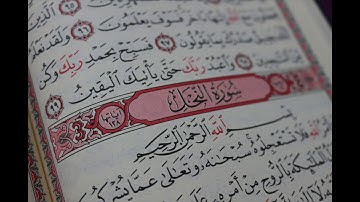 ءَاخَرَ فَسَوْفَ يَعْلَمُونَ ٩٦ وَلَقَدْ نَعْلَمُ
صَدْرُكَ بِمَا يَقُولُونَ ٩٧ فَسَبِّحْ بِحَمْدِ رَبِّكَ وَكُن
السَّٰجِدِينَ ٩٨ وَاعْبُدْ رَبَّكَ حَتَّىٰ يَأْتِيَكَ الْيَقِينُ ٩٩
سُورَةُ النَّحْلِ
اللَّهِ الرَّحْمَٰنِ الرَّحِيمِ
اللَّهِ فَلَا تَسْتَعْجِلُوهُ سُبْحَٰنَهُ وَتَعَٰلَىٰ عَمَّا يُشْرِكُونَ
الْمَلَٰٓئِكَةَ بِالرُّوحِ مِنْ أَمْرِهِ عَلَىٰ